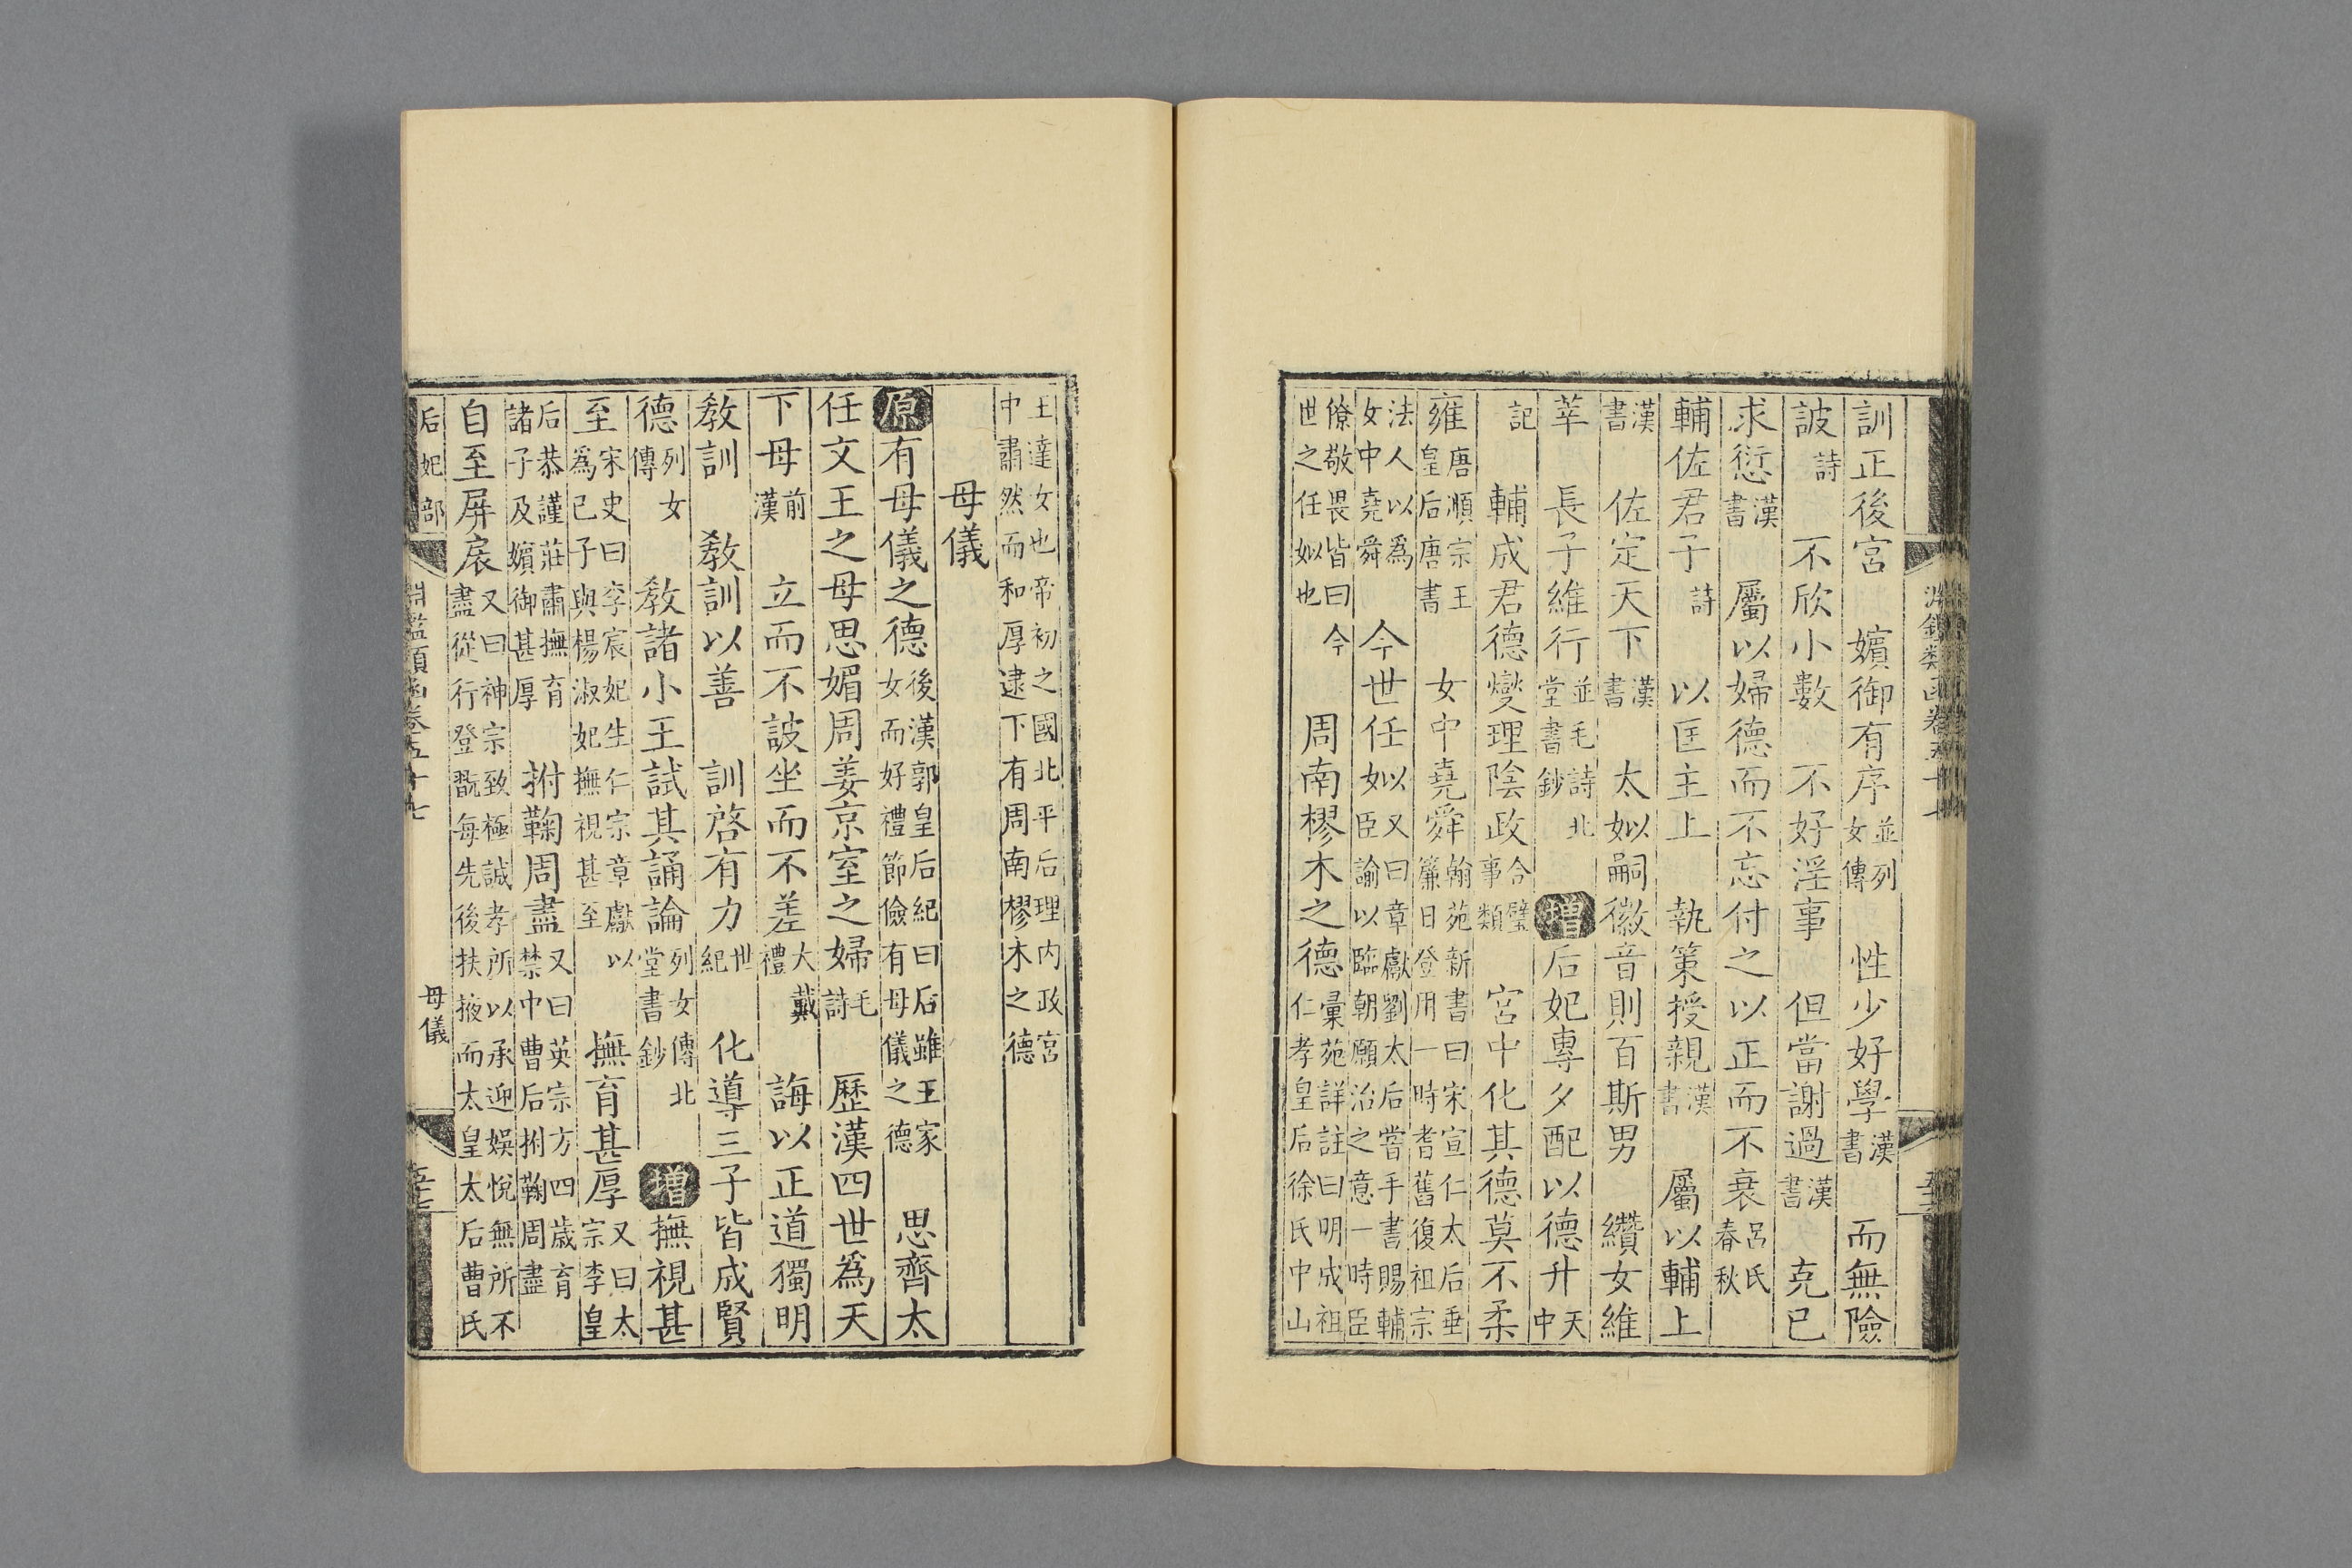 訓正後宮　嬪御有序並列女傳　性少好學漢書　而無險
詖詩　不欣小數　不好淫事　但當謝過漢書　克已
求愆漢書　屬以婦德而不忘付之以正而不衰呂氏春秋
輔佐君子詩　以匡主上　執策授親漢書　屬以輔上
漢書　佐定天下漢書　太姒嗣徽音則百斯男　纘女維
莘　長子維行並毛詩北堂書鈔　增后妃專夕配以德升天中
記　輔成君德燮理陰政合璧事類　宮中化其德莫不柔
雍唐順宗王皇后唐書　女中堯舜翰苑新書曰宋宣仁太后垂簾日登用一時耆舊復祖宗
法人以爲女中堯舜　今世任姒又曰章獻劉太后嘗手書賜輔臣諭以臨朝願治之意一時臣
僚敬畏皆曰今世之任姒也　周南樛木之德彙苑詳註曰明成祖仁孝皇后徐氏中山
王達女也帝初之國北平后理内政宮中肅然而和厚逮下有周南樛木之德
母儀
原有母儀之德後漢郭皇后紀曰后雖王家女而好禮節儉有母儀之德　思齊太
任文王之母思媚周姜京室之婦毛詩　歷漢四世爲天
下母前漢　立而不詖坐而不差大戴禮　誨以正道獨明
教訓　教訓以善　訓啓有力世紀　化導三子皆成賢
德列女傳　教諸小王試其誦論列女傳北堂書鈔　增撫視甚
至宋史曰李宸妃生仁宗章獻以爲己子與楊淑妃撫視甚至　撫育甚厚又曰太宗李皇
后恭謹莊肅撫育諸子及嬪御甚厚　拊鞠周盡又曰英宗方四歲育禁中曹后拊鞠周盡
自至屏扆又曰神宗致極誠孝所以承迎娛悅無所不盡從行登翫每先後扶掖而太皇太后曹氏
后妃部
淵鑑類函卷五十七
母儀